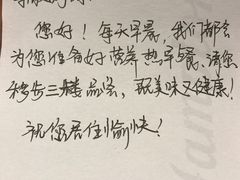 您好！每天早晨，我们都会
为您准备好营养热早餐，请您
移步三楼品尝，既美味又健康！
祝您居住愉快！